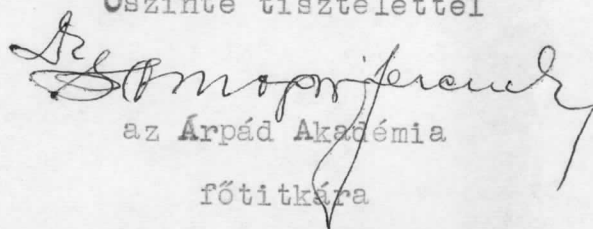 Őszinte tisztelettel
Dr Somogyi Ferenc
az Árpád Akadémia
főtitkára